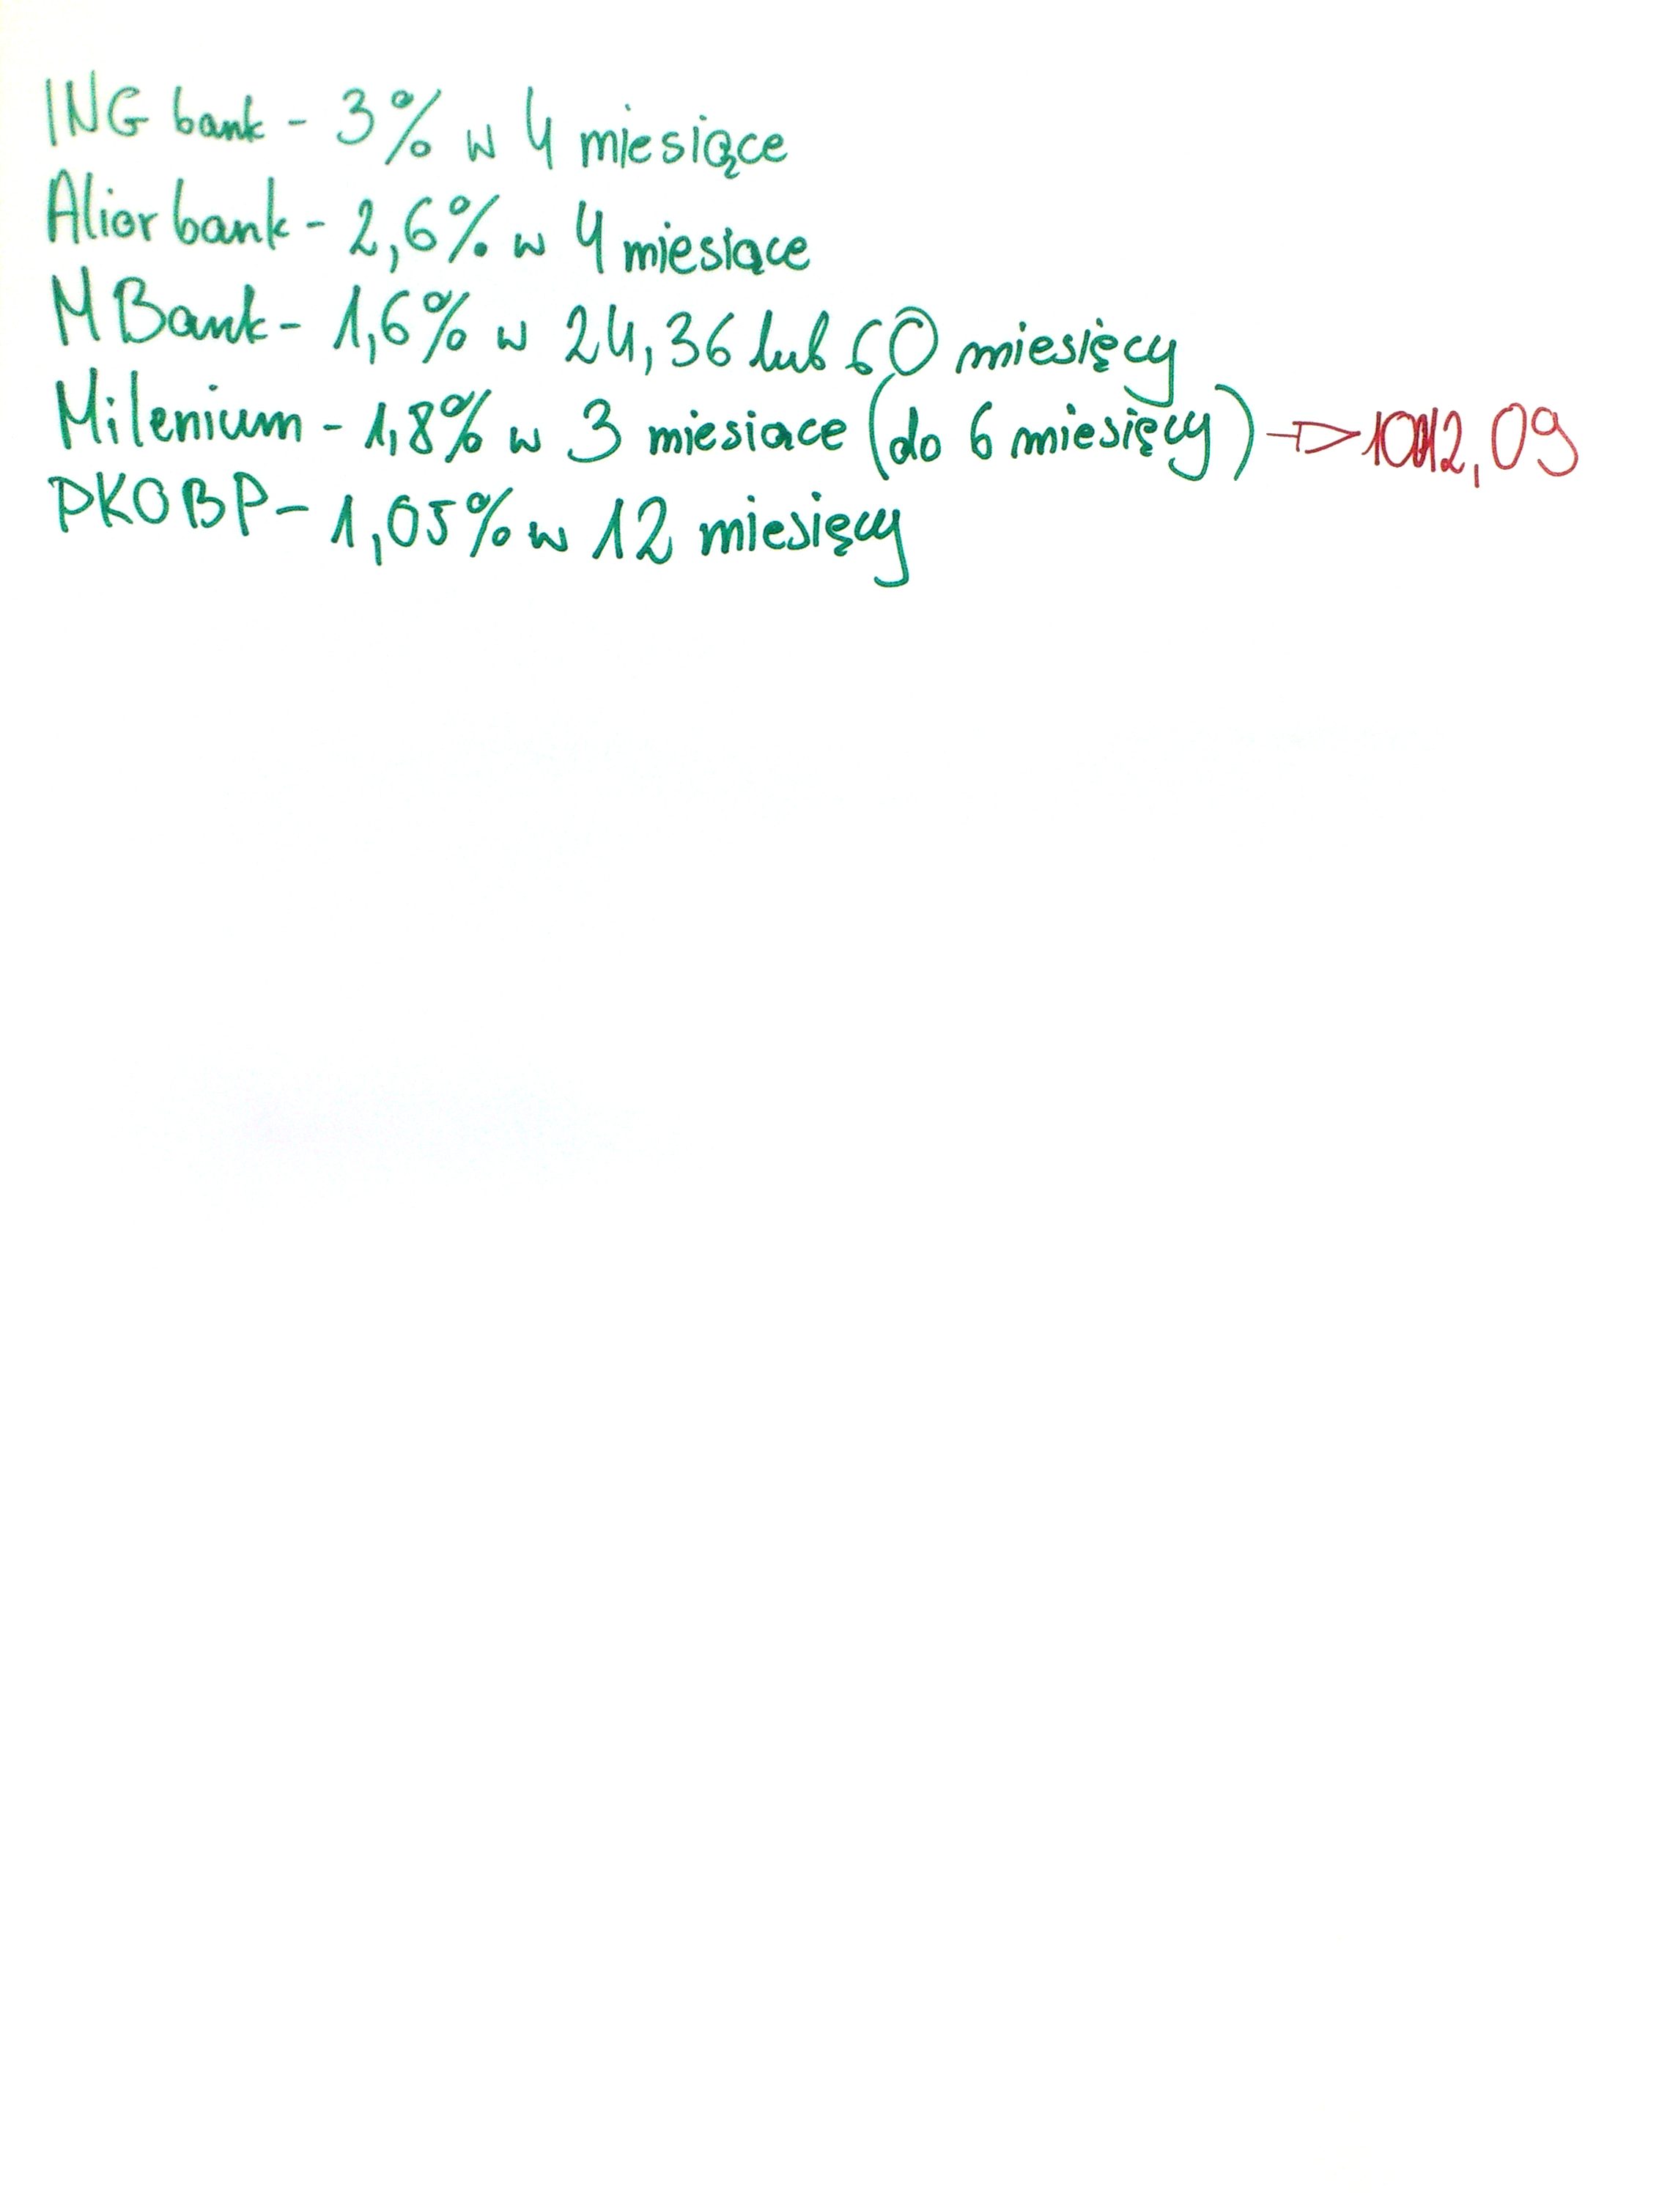 ING bank - 3% w 4 miesiące
Alior bank - 2,6% w 4 miesiące
M Bank - 1,6% w 24, 36 lub 60 miesięcy
Milenium - 1,8% w 3 miesiace (do 6 miesięcy)
PKOBP - 1,05% w 12 miesięcy